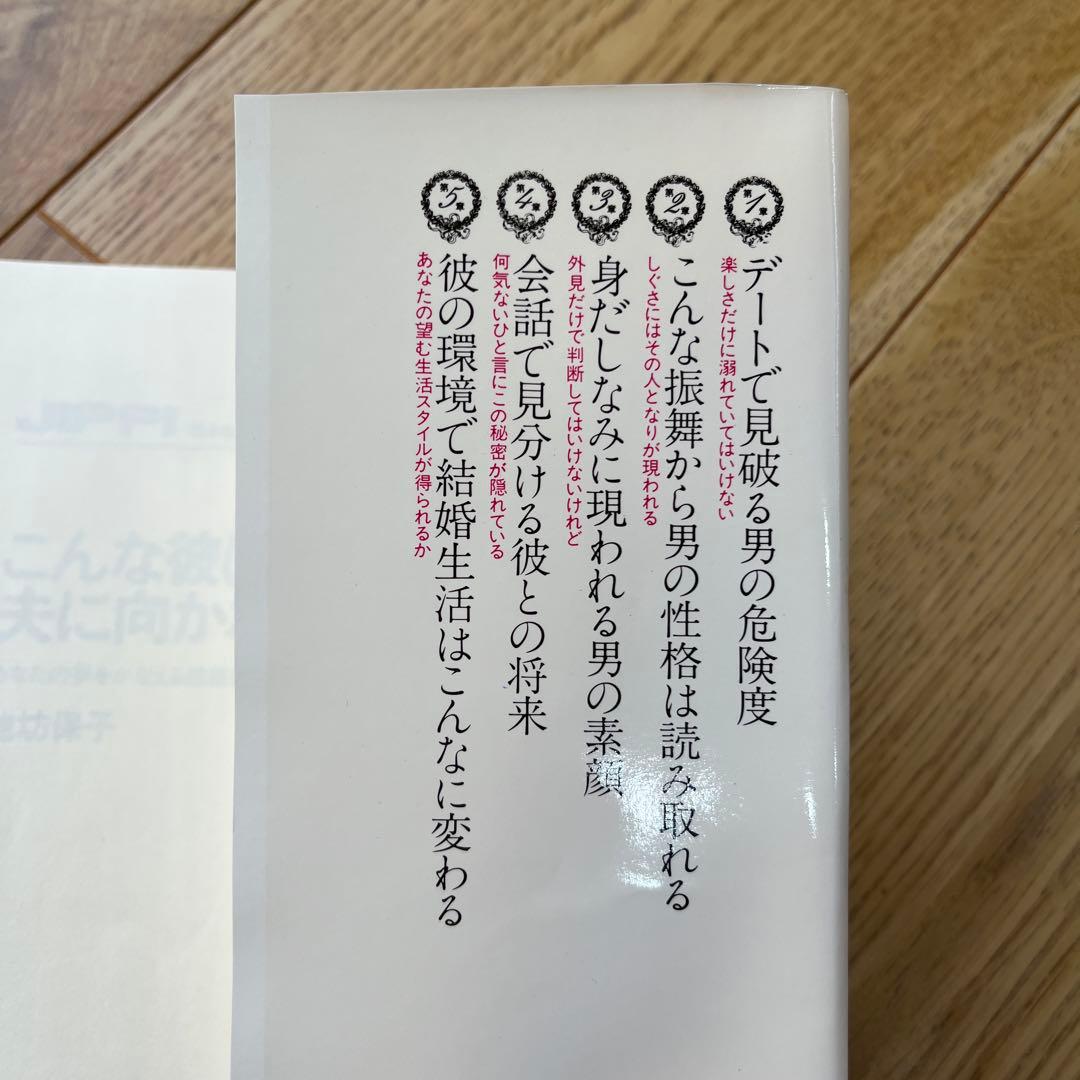 第1章
デートで見破る男の危険度
楽しさだけに溺れていてはいけない
第2章
こんな振舞から男の性格は読み取れる
しぐさにはその人となりが現われる
第3章
身だしなみに現われる男の素顔
外見だけで判断してはいけないけれど
第4章
会話で見分ける彼との将来
何気ないひと言にこの秘密が隠れている
第5章
彼の環境で結婚生活はこんなに変わる
あなたの望む生活スタイルが得られるか
こんな彼
夫に向か
坊保子